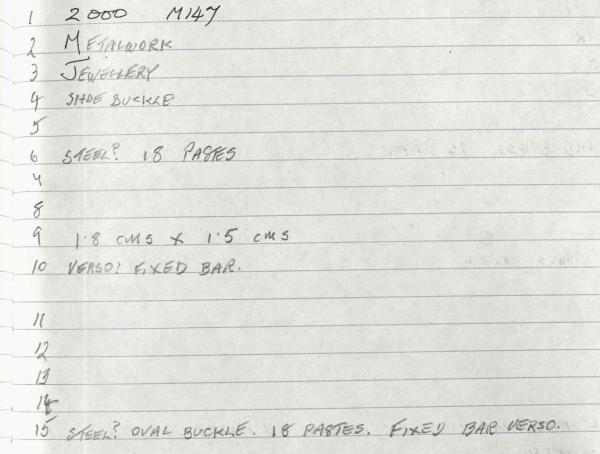 1 2000 M147
2 METALWORK
3 JEWELLERY
4 SHOE BUCKLE
5
6 STEEL? 18 PASTES
4
8
9 1.8 cms x 1.5 cms
10 VERSO: FIXED BAR.
11
12
13
14
15 STEEL? OVAL BUCKLE. 18 PASTES. FIXED BAR VERSO.